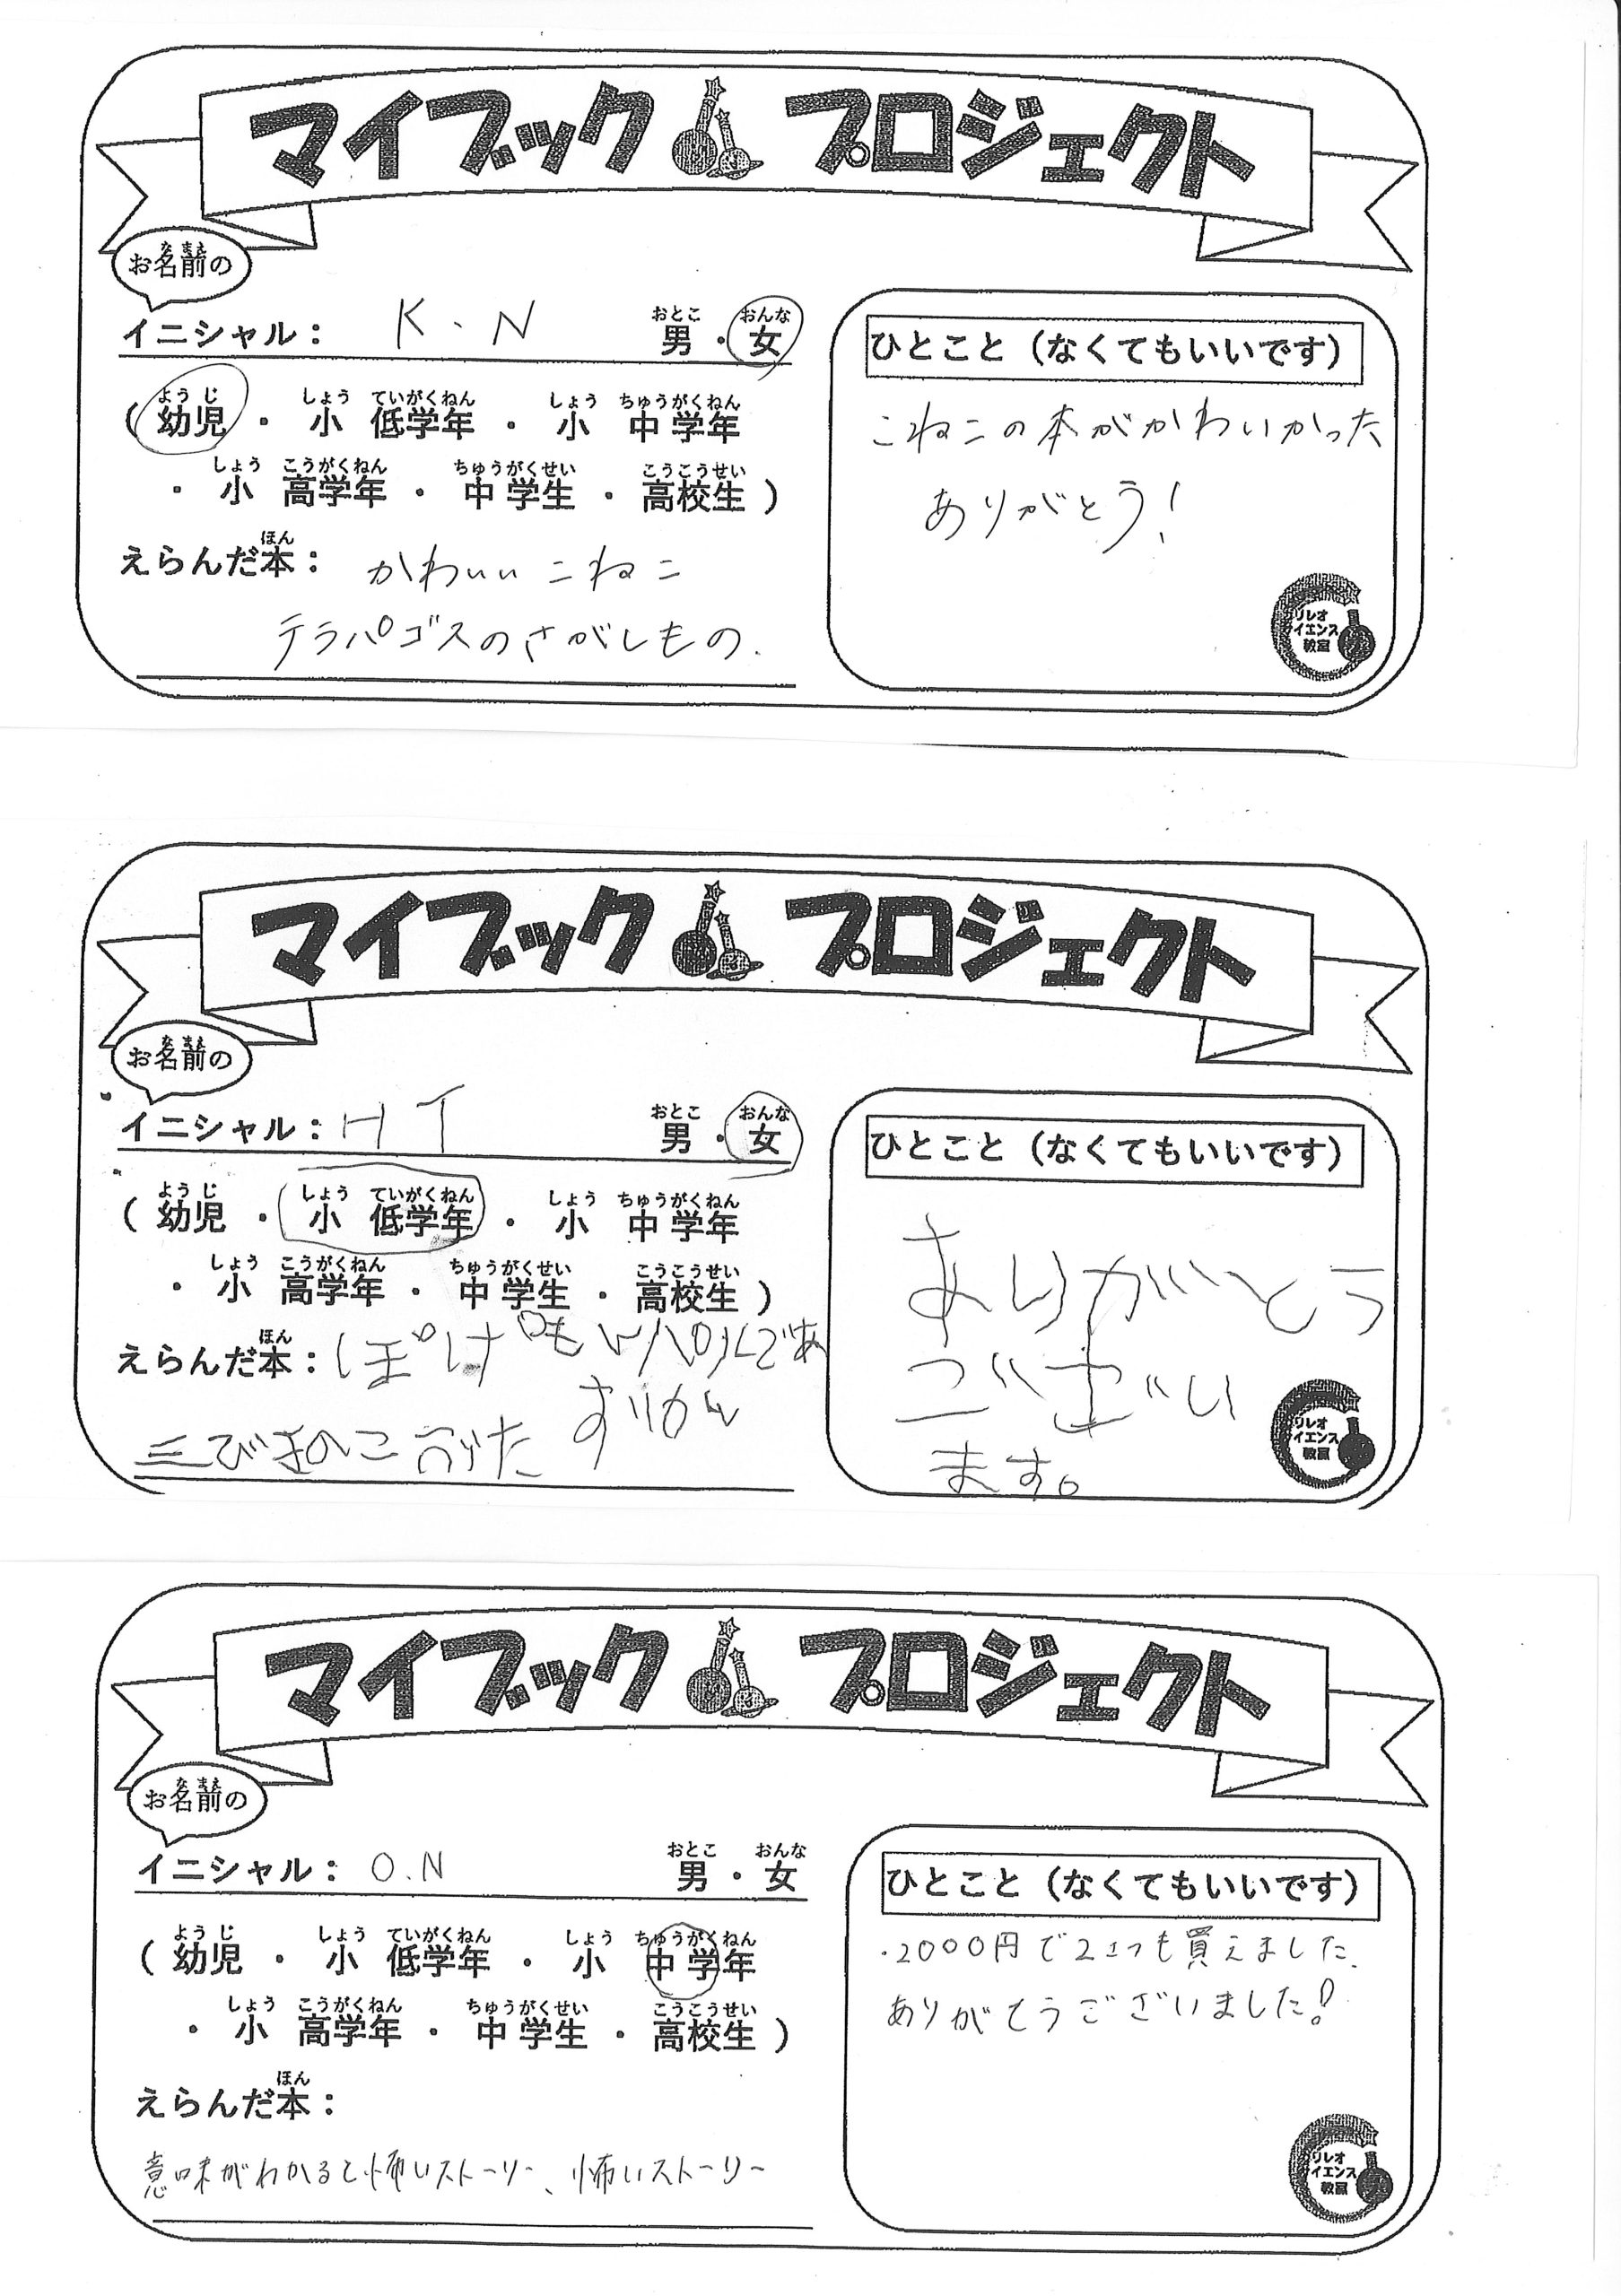 マイブック プロジェクト
お名前の
イニシャル： K.N 男・女
（幼児・小 低学年・小 中学年
・小 高学年・中学生・高校生）
えらんだ本： かわいいこねこ
テラパゴスのさがしもの.
ひとこと（なくてもいいです）
こねこの本がかわいかった
ありがとう!
リレオ
イエンス
教室
マイブック プロジェクト
お名前の
イニシャル： HT 男・女
（幼児・小 低学年・小 中学年
・小 高学年・中学生・高校生）
えらんだ本： ぽけもん
ずかん
三びきのこぶた
ひとこと（なくてもいいです）
ありがとう
ございい
ます。
リレオ
イエンス
教室
マイブック プロジェクト
お名前の
イニシャル： O.N 男・女
（幼児・小 低学年・小 中学年
・小 高学年・中学生・高校生）
えらんだ本：
意味がわかると怖いストーリー、怖いストーリー
ひとこと（なくてもいいです）
・2000円で2つも買えました.
ありがとうございました!
リレオ
イエンス
教室